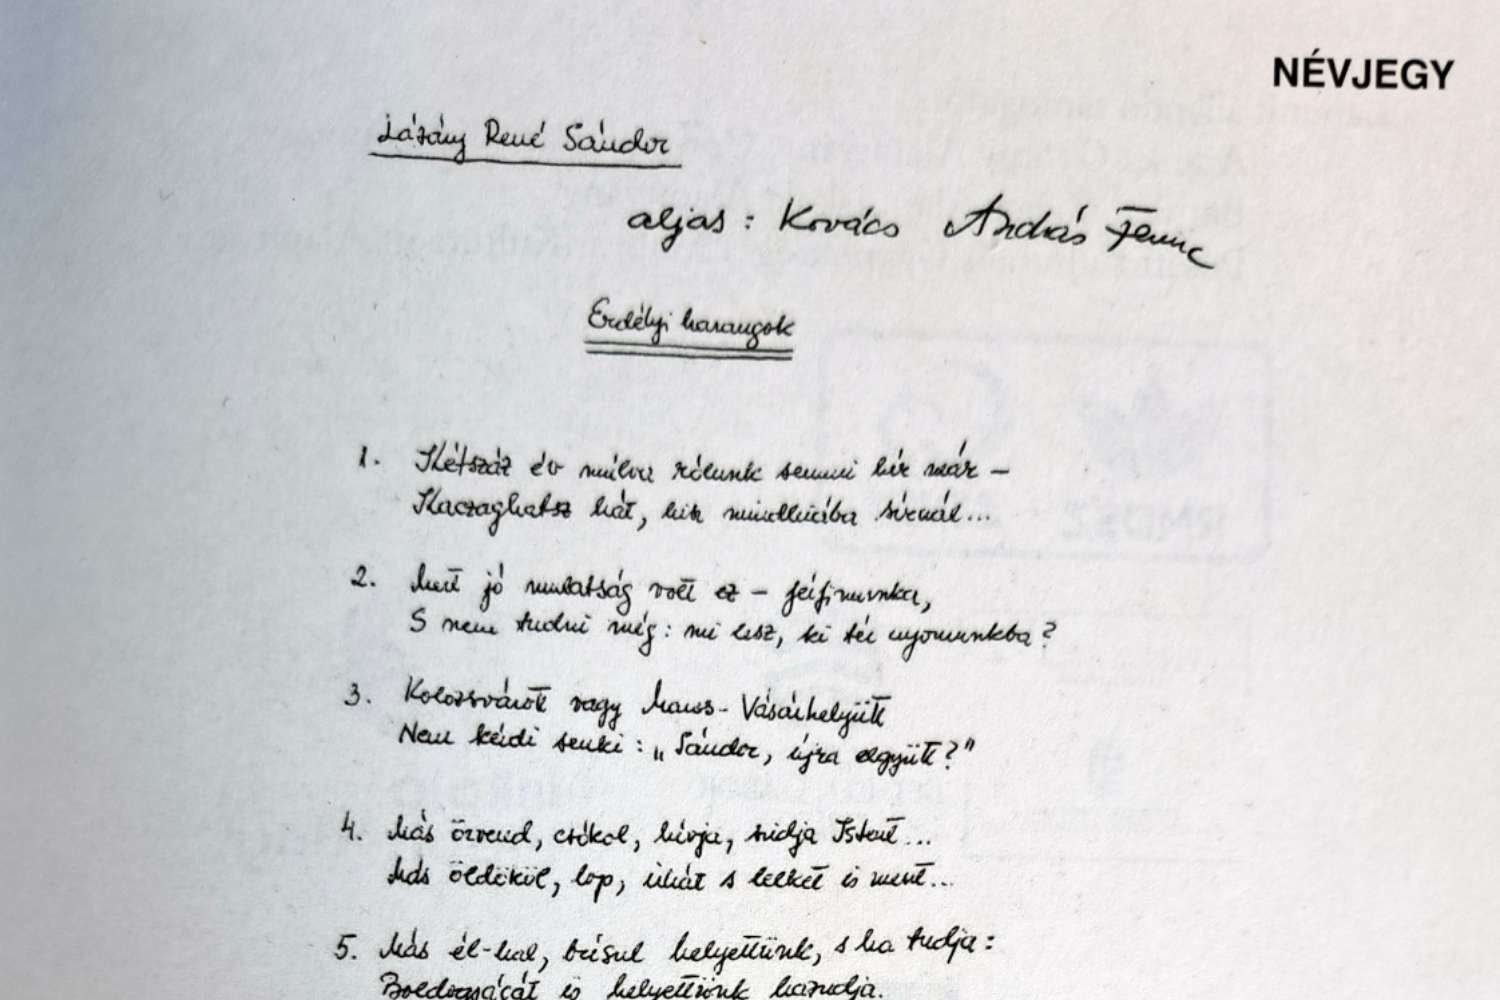 NÉVJEGY
Lázáry René Sándor
aljas: Kovács András Ferenc
Erdélyi harangok
1. Kétszáz év múlva rólunk semmi hír már –
Kacaghatsz hát, bár mindhiába sírnál...
2. Mert jó mulatság volt ez – férfimunka,
S nem tudni még: mi lesz, ki tér nyomunkba?
3. Kolozsvárott vagy Maros-Vásárhelyütt
Nem kérdi senki: „Sándor, újra együtt?"
4. Más örvend, csókol, hívja, szidja Istent...
Más öldököl, lop, imát s lelket is ment...
5. Más él-hal, búsul helyettünk, s ha tudja:
Boldogságát is helyettünk hazudja.